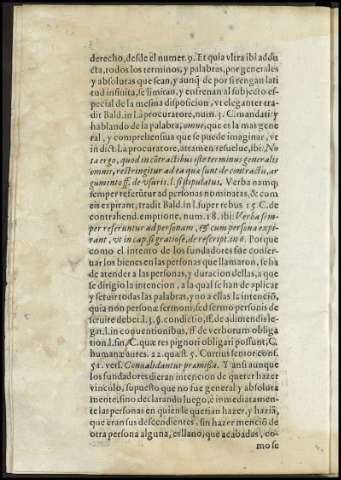 derecho, desde el numer. 9. Et quia vltra ibi addu
cta, todos los terminos, y palabras, por generales
y absolutas que sean, y aunq̃ de por si tengan lati
tud infinita, se limitan, y enfrenan al subjecto es-
pecial de la mesma disposicion, vt eleganter tra-
dit Bald. in l. procuratore, num. 3. C. mandati: y
hablando de la palabra, omne, que es la mas gene
ral, y comprehensiua que se puede imaginar, ve
in dict. l. procuratore, attamen resuelue, ibi: No
ta ergo, quod in cõtractibus iste terminus generalis
omnis, restringitur ad ea quæ sunt de contractu, ar
gumento ff. de vsuris. l. si stipulatus. Verba namq;
semper referũtur ad personas nominatas, & cum
eis expirant, tradit Bald. in l. super rebus 15 C. de
contrahend. emptione, num. 18. ibi: Verba sem-
per referuntur ad personam, & cum persona expi-
rant, vt in cap. si gratiose, de rescript. in 6. Porque
como el intento de los fundadores fue conser-
uar los bienes en las personas que llamaron, se ha
de atender a las personas, y duracion dellas, a que
se dirigio la intencion, a la qual se han de aplicar
y seruir todas las palabras, y no a ellas la intenciõ,
quia non personæ sermoni, sed sermo personis de
seruire debet. l. 3. §. condictio, ff. de adimendis le-
gat. l. in conuentionibus, ff. de verborum obliga
tion. l. sin. C. quæ res pignori obligari possunt, C.
humanæ aures. 22. quæst. 5. Curtius senior, cons.
51. vers. Conualidantur præmissa. Y ansi aunque
los fundadores dieran intencion de querer hazer
vinculo, supuesto que no fue general y absoluta
mente, sino declarando luego, è inmediatamen-
te las personas en quien le querian hazer, y haziã,
que eran sus descendientes, sin hazer menciõ de
otra persona alguna, es llano, que acabados, co-
mo se